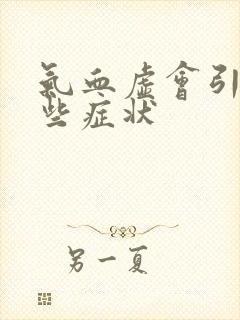 氣血虛會引
些症狀
另一夏